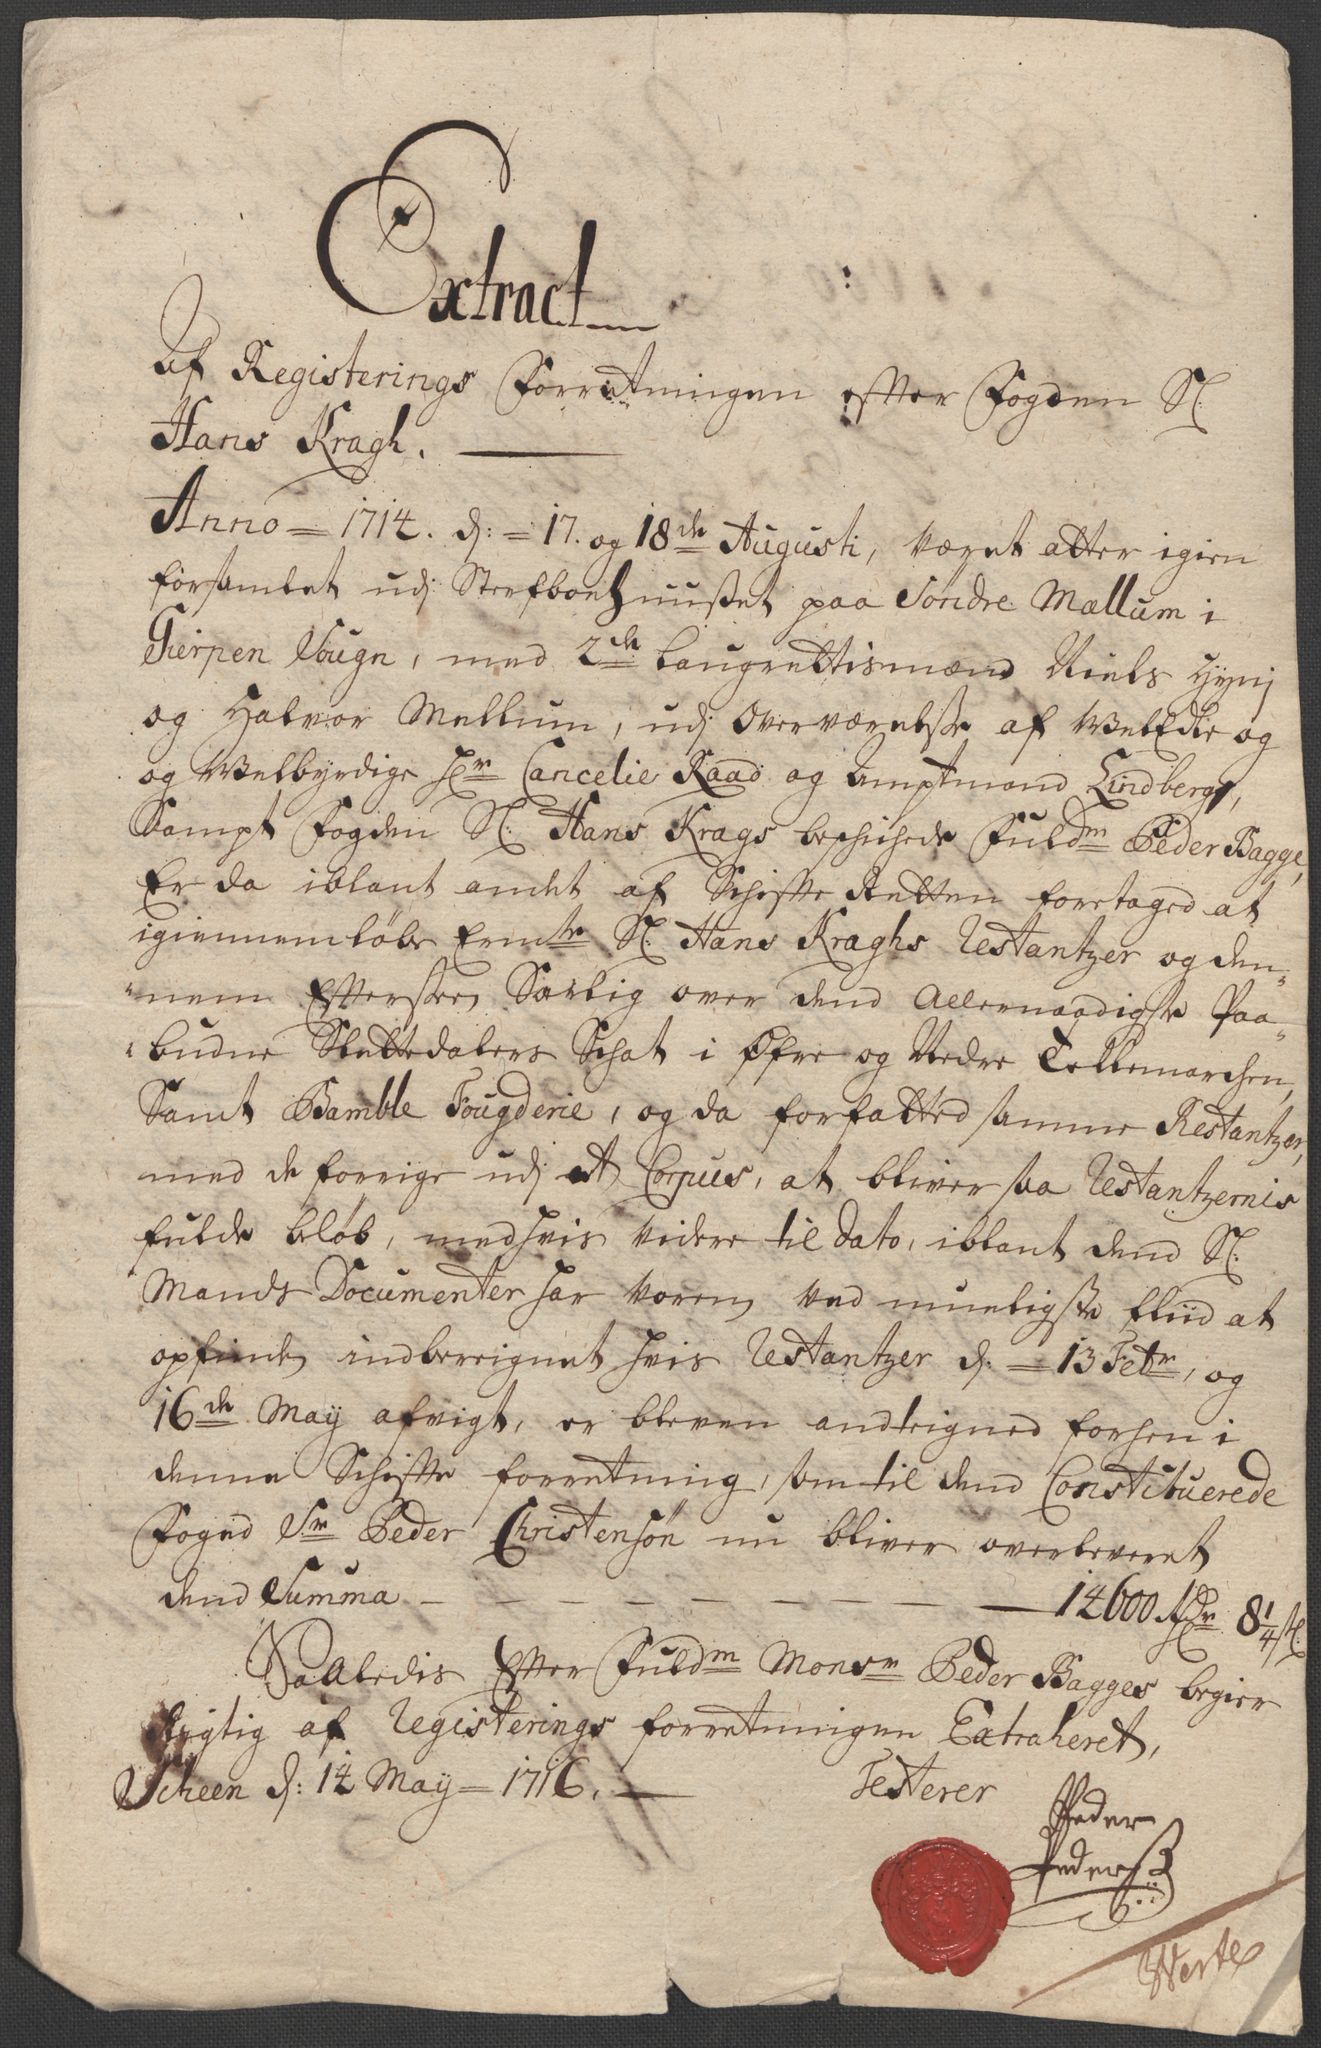 Extract
Af Registerings Forretningen efter Fogden Sl:
Hans Kragh.
Anno = 1714. d: = 17. og 18de Augusti, været atter igien
forsamlet udj Sterfboehuuset paa Søndre Mællum i
Gierpen Sougn, med 2de Laugrettismænd Niels
og Halvor Mellum, udj Overværelse af WelEdle og
og Welbyrdige Hr Cancelie Raad og Amptmand Lindberg,
Sampt Fogden Sl: Hans Krags beschichede Fuldm Peder Bagge,
Er da iblant andet af Schifte Retten foretaged at
igiennemløbe Ermte Sl: Hans Kraghs Restantzer og den-
nem Efterseet, Særlig over dend Allernaadigste Paa-
budne Slettedalers Schat i Øfre og Nedre Tellemarchen,
Samt Bamble Fougderie, og da forfatted samme Restantzer,
med de forrige udj et Corpus, at bliver saa Restantzernis
fulde beløb, med hvis videre til dato, iblant dend Sl:
Mands Documenter har voren ved mueligste fliid at
opfinde, indbereignet hvis Restantzer d: = 13 Febr, og
16de May afvigt, er bleven andteigned forhen i
denne Schifte forretning, som til dend Constituerede
Foged Sr Peder Christensøn nu bliver overleveret
dend Summa — — — — — — — — — 14600 Rdr 8 1/4 s:
Saaledis Efter Fuldm Monsr Peder Bagges begier
Rigtig af Registerings forretningen Extraheret,
Scheen d: 14 May = 1716.
Testerer
Peder
Pederss
Verte